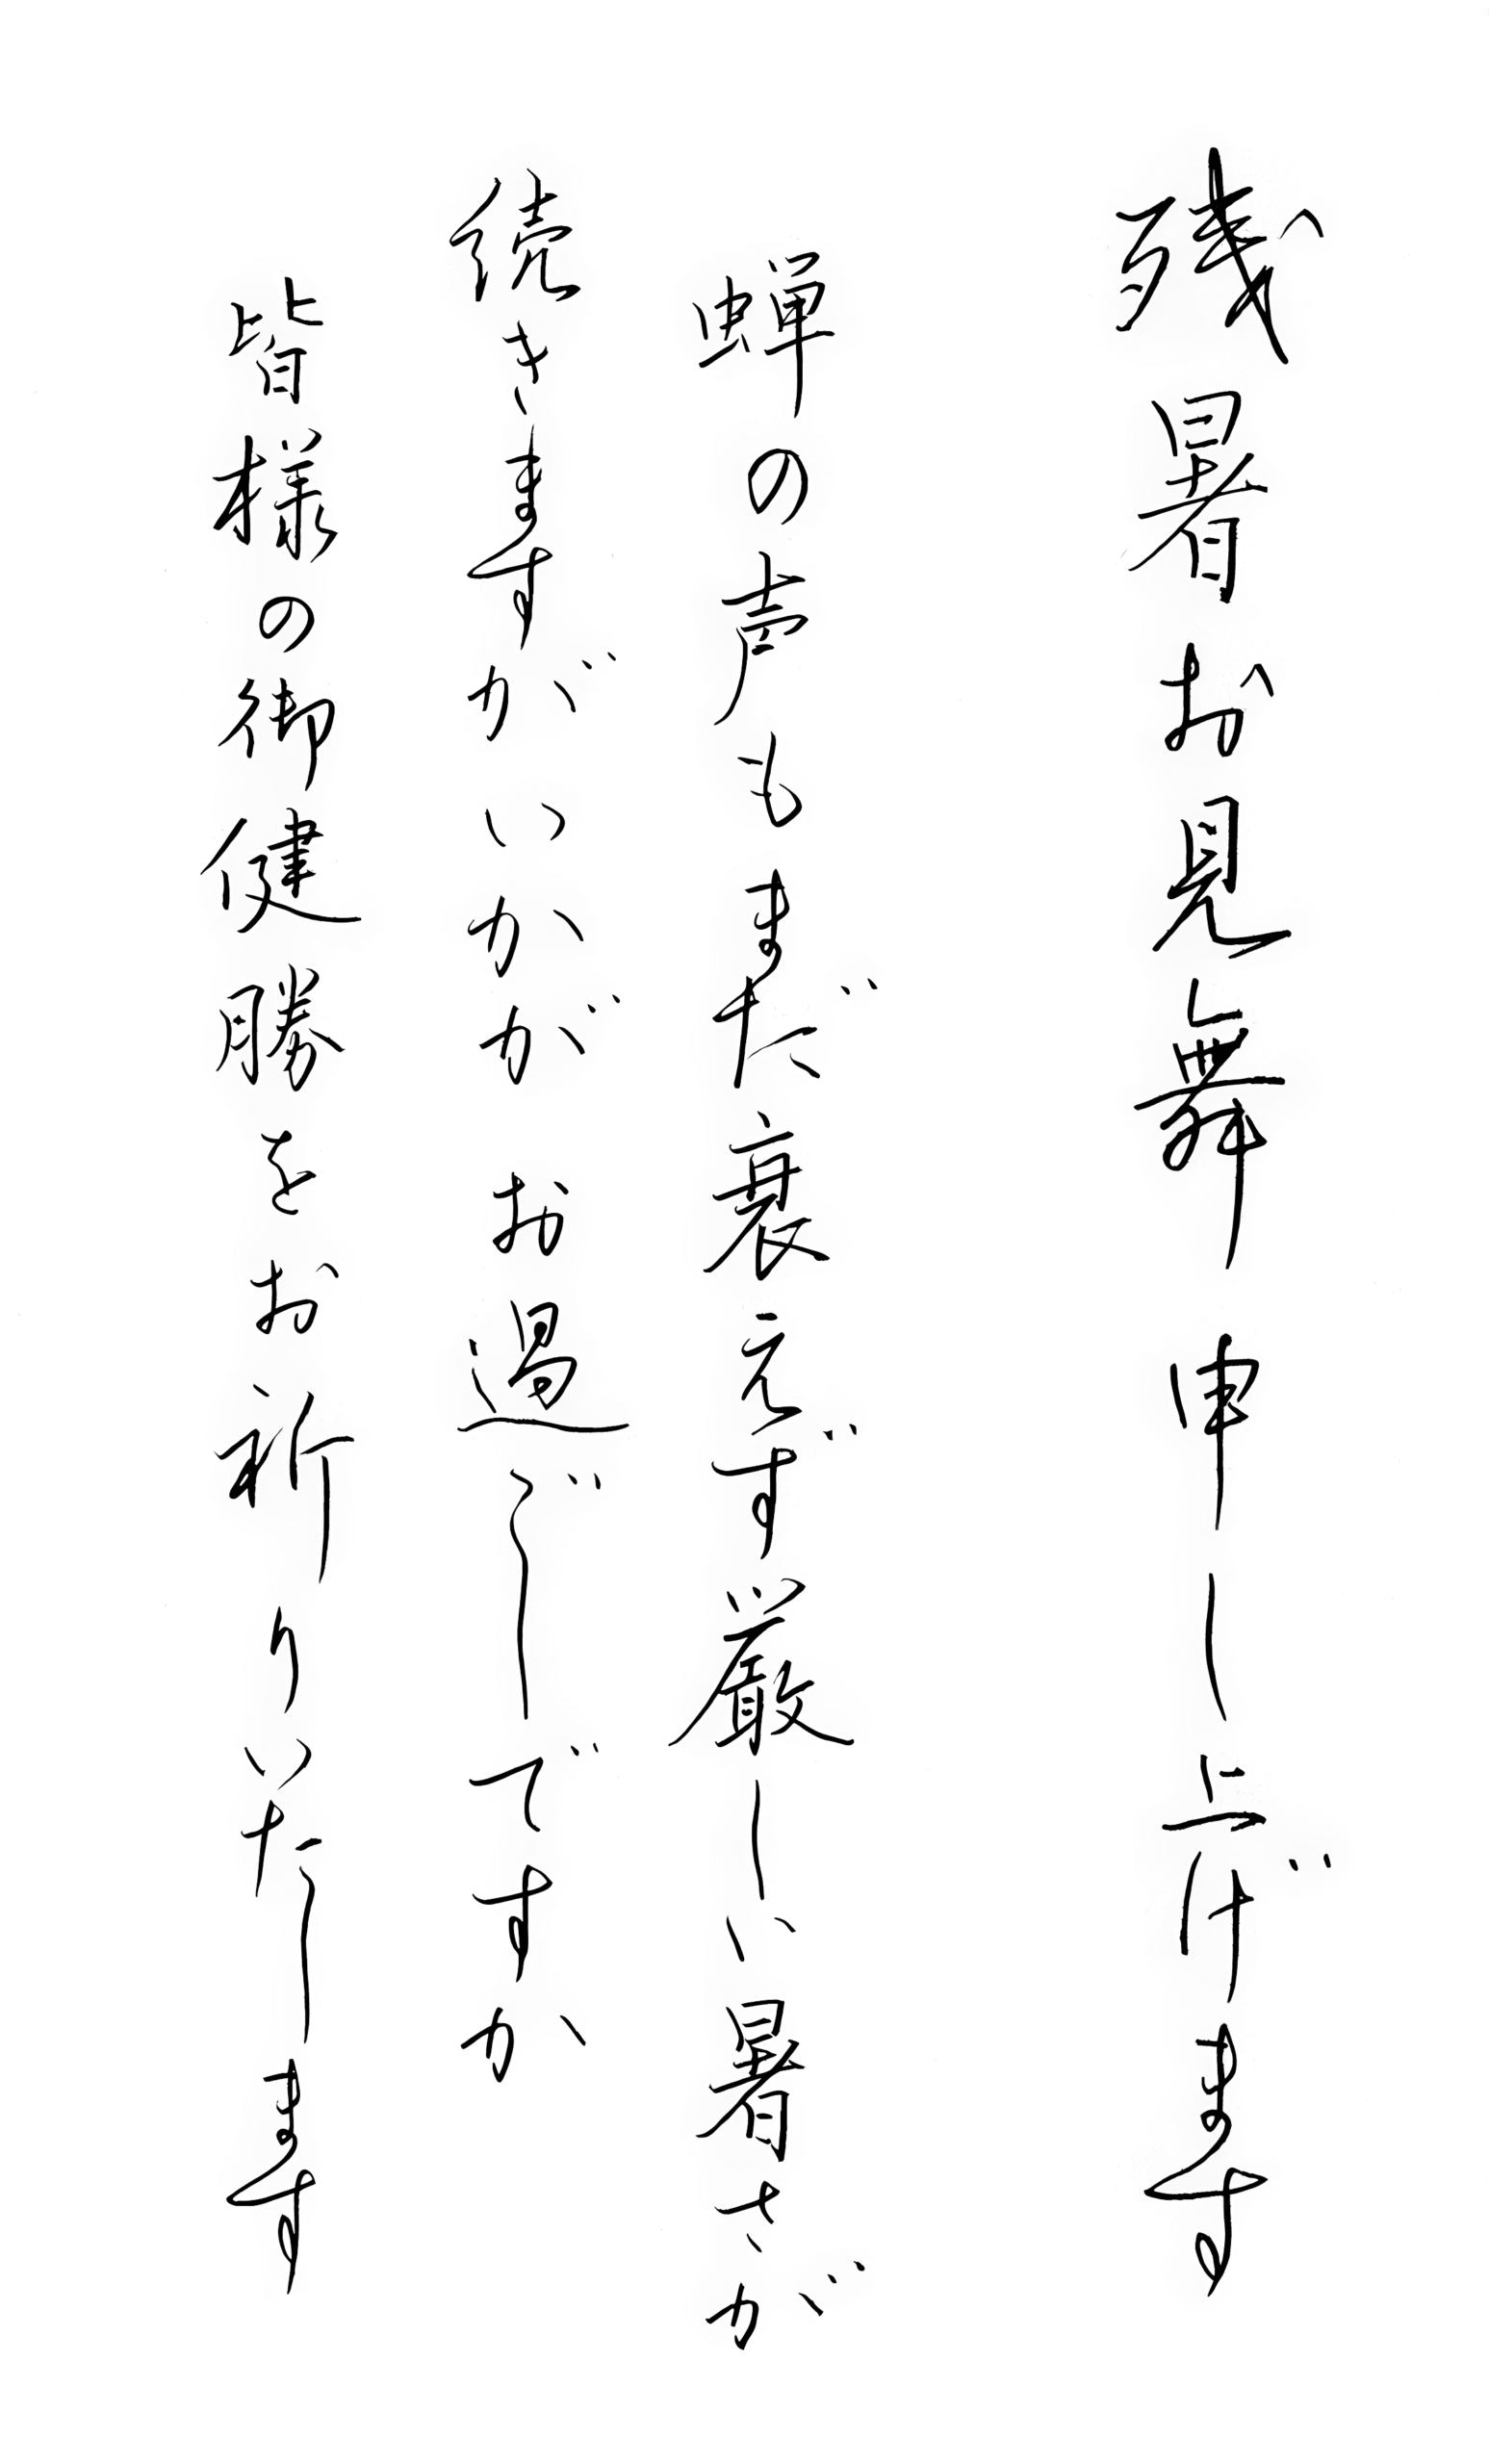 残暑お見舞申し上げます
蝉の声もまだ衰えず厳しい暑さが
続きますがいかがお過ごしですか
皆様の御健勝をお祈りいたします